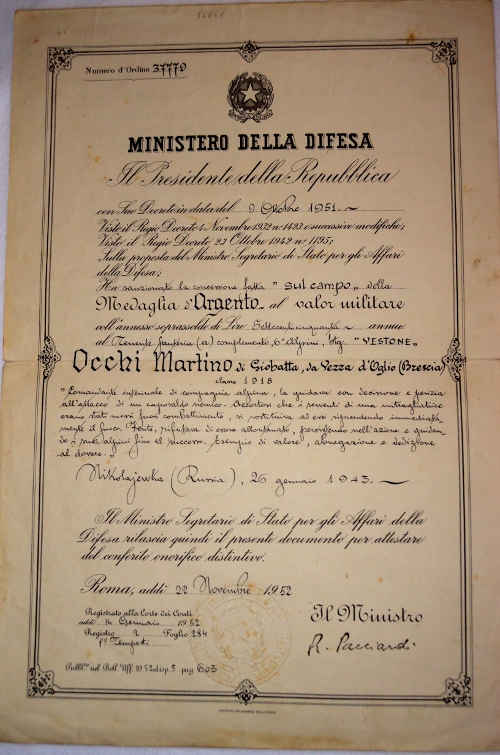 Numero d'Ordine 37779
MINISTERO DELLA DIFESA
Il Presidente della Repubblica
con Suo Decreto in data del 9 Ottobre 1951.
Visto il Regio Decreto 4 Novembre 1932 nº 1423 e successive modifiche;
Visto il Regio Decreto 23 Ottobre 1942 nº 1195;
Sulla proposta del Ministro Segretario di Stato per gli Affari
della Difesa;
Ha sanzionato la concessione fatta "sul campo" della
Medaglia d'Argento al valor militare
coll'annesso soprassoldo di Lire Settecentocinquanta annue
al Tenente fanteria (a) complemento, 6º alpini, btg. "VESTONE"
Occhi Martino di Giobatta, da Vezza d'Oglio (Brescia)
classe 1918
"Comandante interinale di compagnia alpina, la guidava con decisione e perizia
all'attacco di un caposaldo nemico. Accortosi che i serventi di una mitragliatrice
erano stati messi fuori combattimento, si sostituiva ad essi riprendendo immediata
mente il fuoco. Ferito, rifiutava di essere allontanato, persistendo nell'azione e guidan
do i suoi alpini fino al successo. Esempio di valore, abnegazione e dedizione
al dovere."
Nikolajewka (Russia), 26 gennaio 1943.
Il Ministro Segretario di Stato per gli Affari della
Difesa rilascia quindi il presente documento per attestare
del conferito onorifico distintivo.
Roma, addì 22 Novembre 1952
Registrato alla Corte dei Conti
addì 14 Gennaio 1952
Registro 2 Foglio 284
Il Ministro
R. Pacciardi
Pubblº nel Boll. Uff. 1952 disp. 5 pag. 603